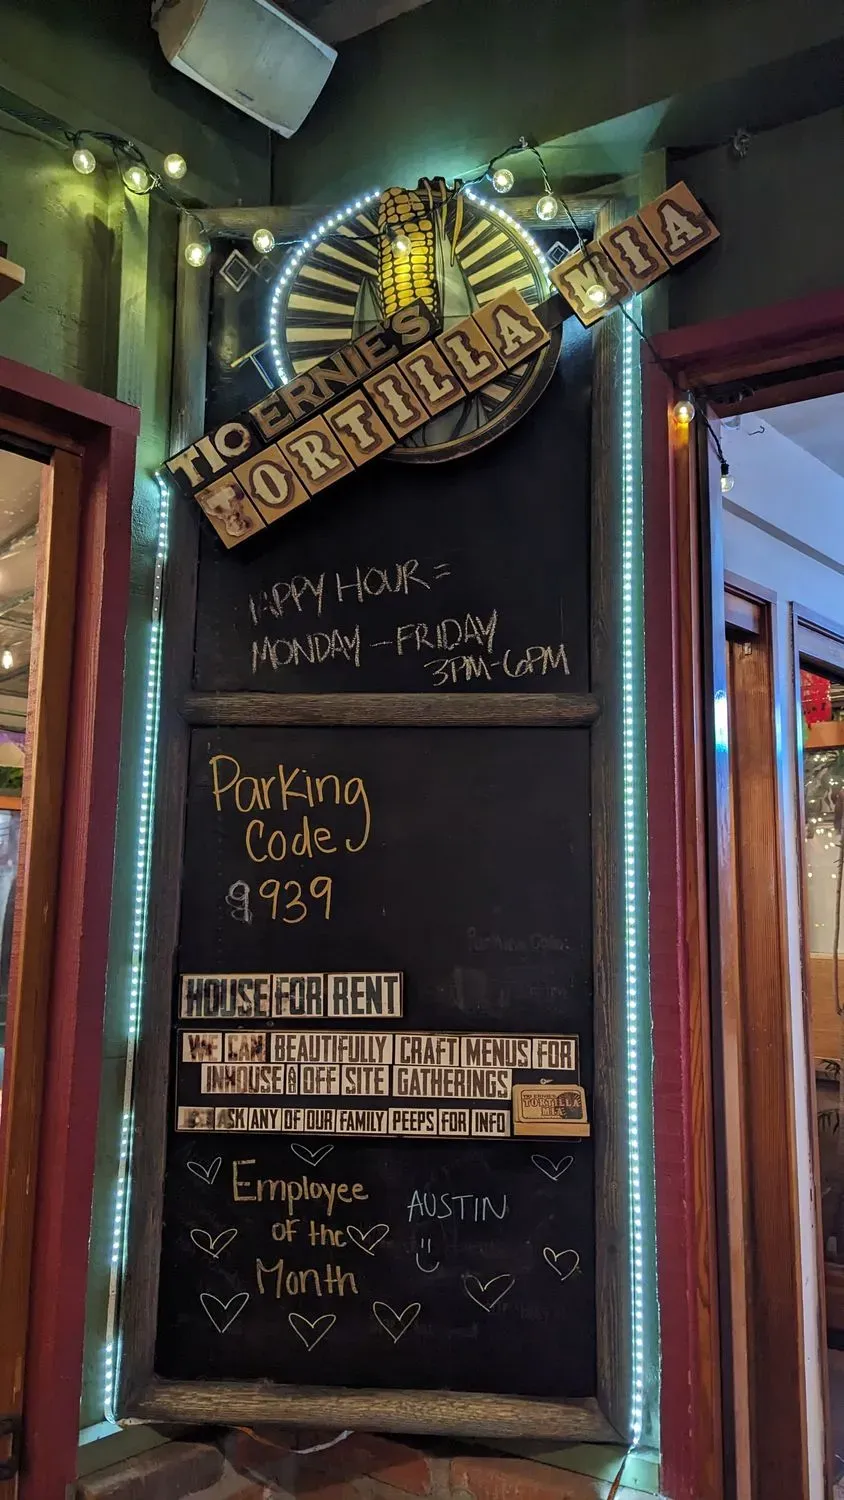 TIO ERNIE'S
TORTILLA MIA
HAPPY HOUR=
MONDAY - FRIDAY
3PM-6PM
Parking
Code
9939
HOUSE FOR RENT
WE CAN BEAUTIFULLY CRAFT MENUS FOR
INHOUSE OFF SITE GATHERINGS
ASK ANY OF OUR FAMILY PEEPS FOR INFO
TIO ERNIE'S
TORTILLA
MIA
Employee
of the
Month
AUSTIN